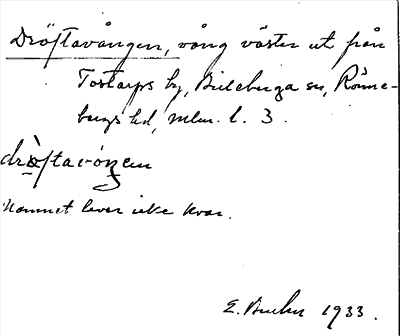 Dröstavången, vång väster ut från
Tostarps by, Billeberga sn, Rönne-
bergs hd, Mlm. l. 3.
drös̀tavóŋen
Namnet lever icke kvar.
E. 1933.